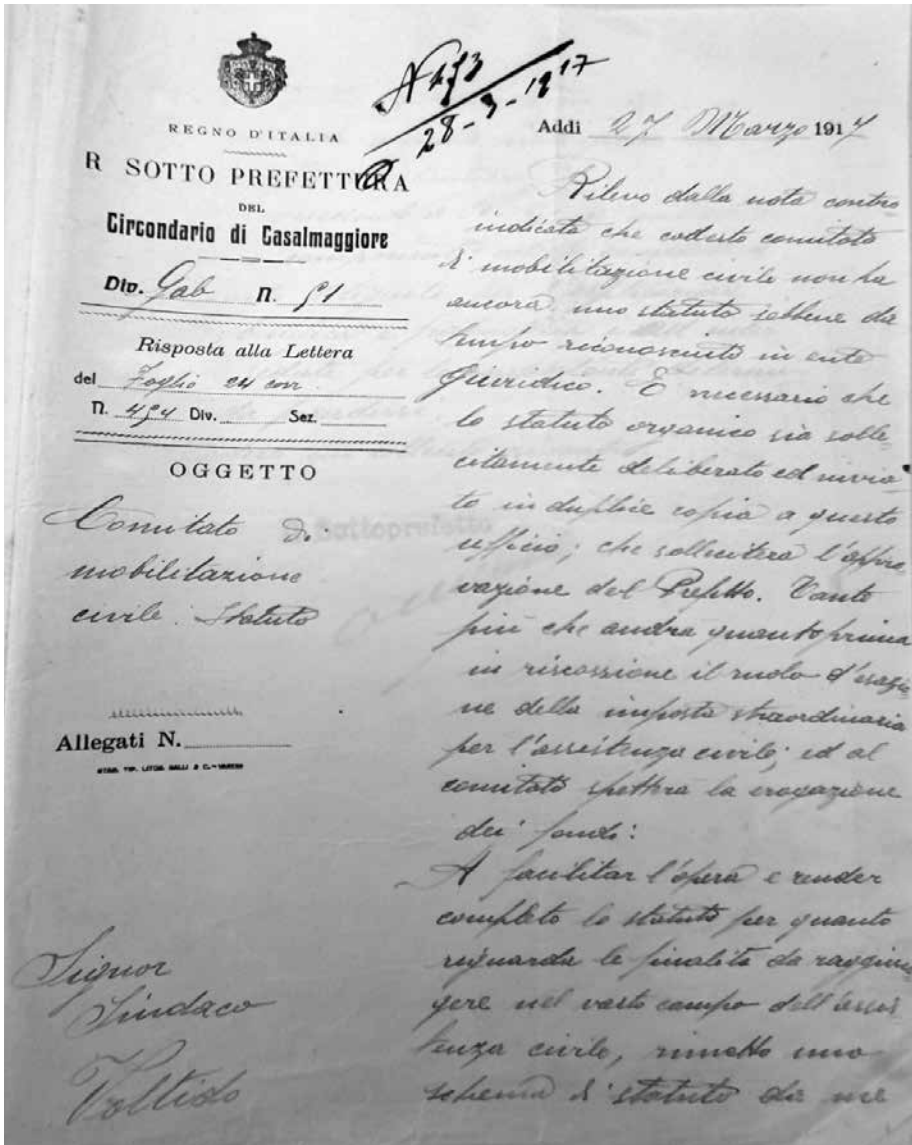 REGNO D'ITALIA
R SOTTO PREFETTURA
DEL
Circondario di Casalmaggiore
Div. Gab N. 51
Risposta alla Lettera
del Foglio 24 corr.
N. 454 Div. Sez.
OGGETTO
Comitato di
mobilitazione
civile. Statuto
Allegati N.
Signor
Sindaco
Voltido
28-3-1917
Addi 27 Marzo 1917
Rilevo dalla nota contro
indicata che codesto comitato
di mobilitazione civile non ha
ancora uno statuto sebbene da
tempo riconosciuto in ente
giuridico. È necessario che
lo statuto organico sia solle
citamente deliberato ed invia
to in duplice copia a questo
ufficio; che solleciterà l'appro
vazione del Prefetto. Tanto
più che andrà quanto prima
in riscossione il ruolo d'esazio
ne della imposta straordinaria
per l'assistenza civile; ed al
comitato spetterà la erogazione
dei fondi:
A facilitar l'opera e render
completo lo statuto per quanto
riguarda le finalità da raggiun
gere nel vasto campo dell'assis
tenza civile, rimetto uno
schema di statuto da me
Sottoprefetto